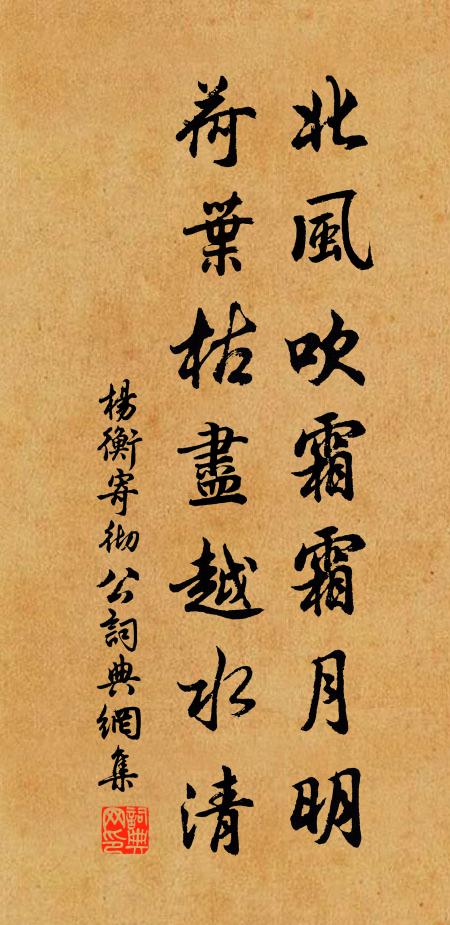 北風吹霜霜月明
荷葉枯盡越水清
楊衡寄彻公詞典網集
詞典网印